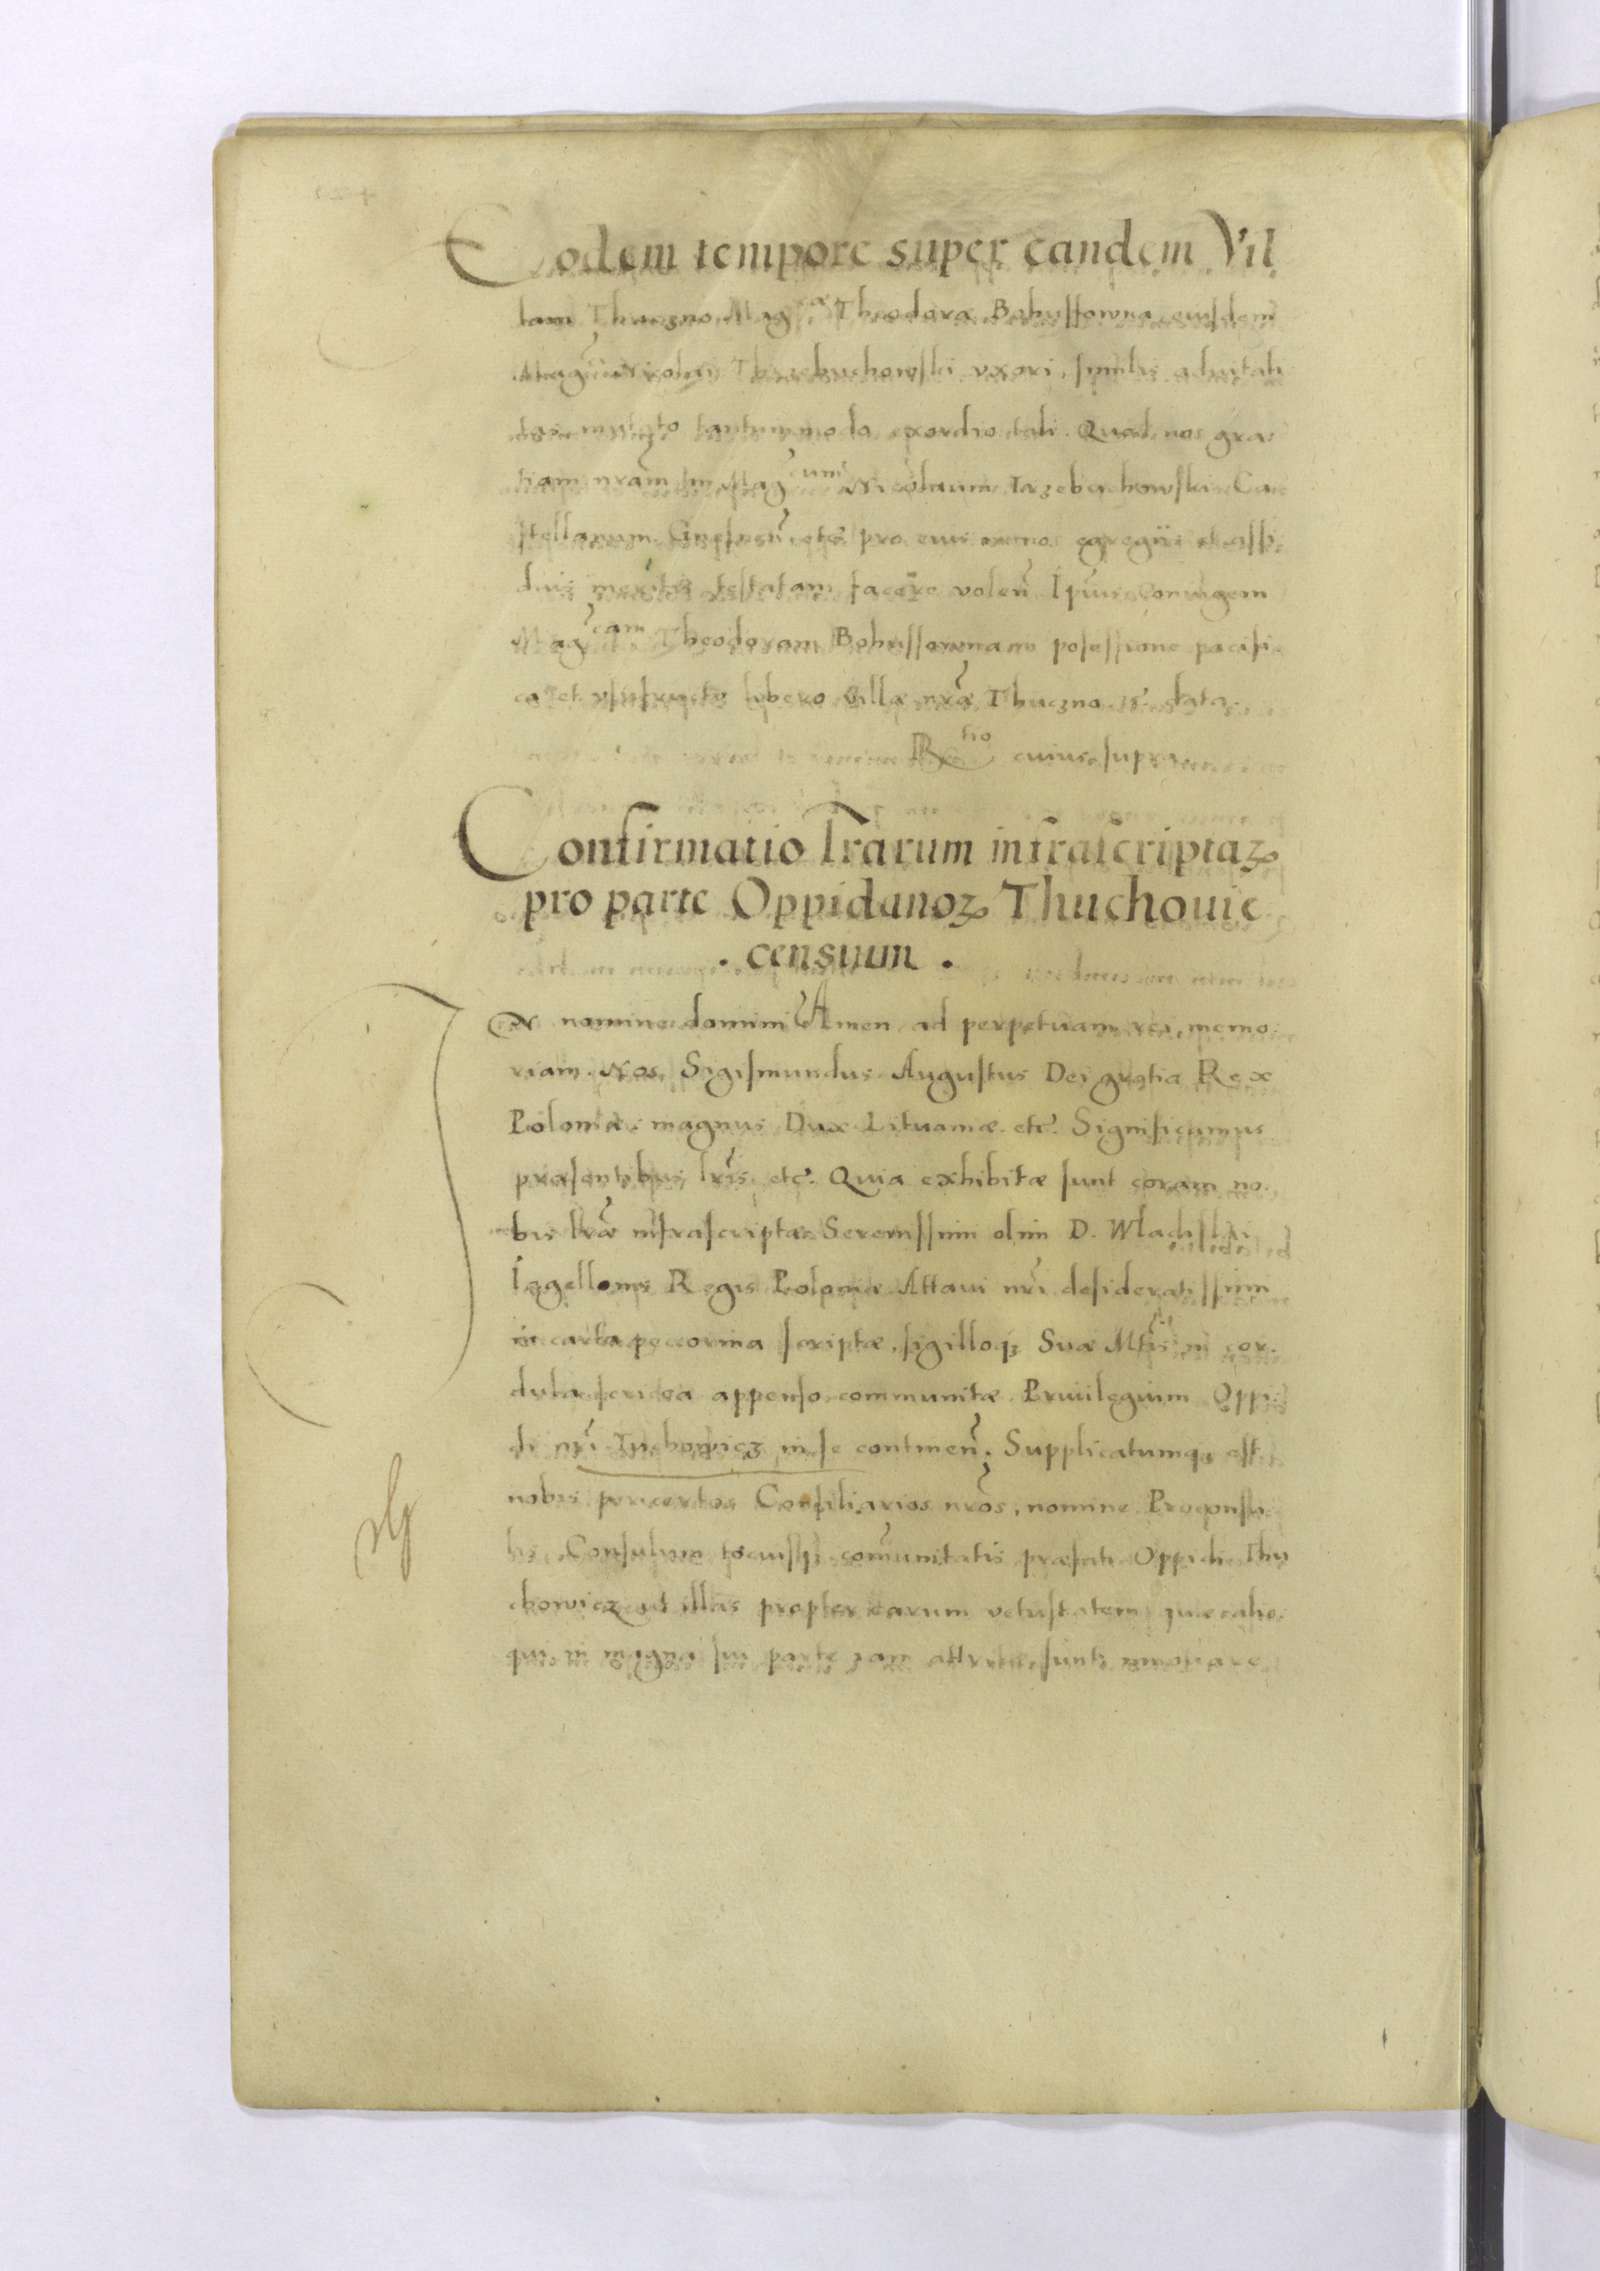 Eodem tempore super eandem Vil
lam Thuczno Magcæ Theodoræ Bohussowna eiusdem
Magci Nicolai Thrzebuchowski vxori, similis aduitali
tas mutato tantummodo exordio tali. Quod nos gra
tiam nrãm in Magcum Nicolaum Trzebuchowski Ca
stellanum Gnesneñ etc. pro eius egregijs et assi
duis meritis testatam facere volen̄ Ipius Coniugem
Magcam Theodoram Bohussownam posessione pacifi
ca et vsufructu libero villæ nræ Thuczno etc. data.
Rtio cuius supra
Confirmatio lrarum infrascriptaꝝ
pro parte Oppidanoꝝ Thuchouie
. censium .
IN nomine domini Amen ad perpetuam rei memo
riam. Nos Sigismundus Augustus Dei gratia Rex
Poloniæ magnus Dux Lituaniæ etc. Significamus
præsentibus lris etc. Quia exhibitæ sunt coram no
bis lræ infrascriptæ Serenissimi olim D. Wladislai
Iagellonis Regis Poloniæ Attaui nri desideratissimi
in carta pecorina scriptæ, sigilloqꝫ Suæ Mtis in cor
dula sericea appenso communitæ Priuilegium Oppi
di nri Tuchowicz in se continen̄. Supplicatumqꝫ est
nobis per certos Consiliarios nros, nomine Proconsu
lis, Consulum totiusqꝫ com̄unitatis præfati Oppidi Thu
chowicz ut illas propter earum vetustatem, quæ
qui in magna sui parte iam attritæ sunt, innouare